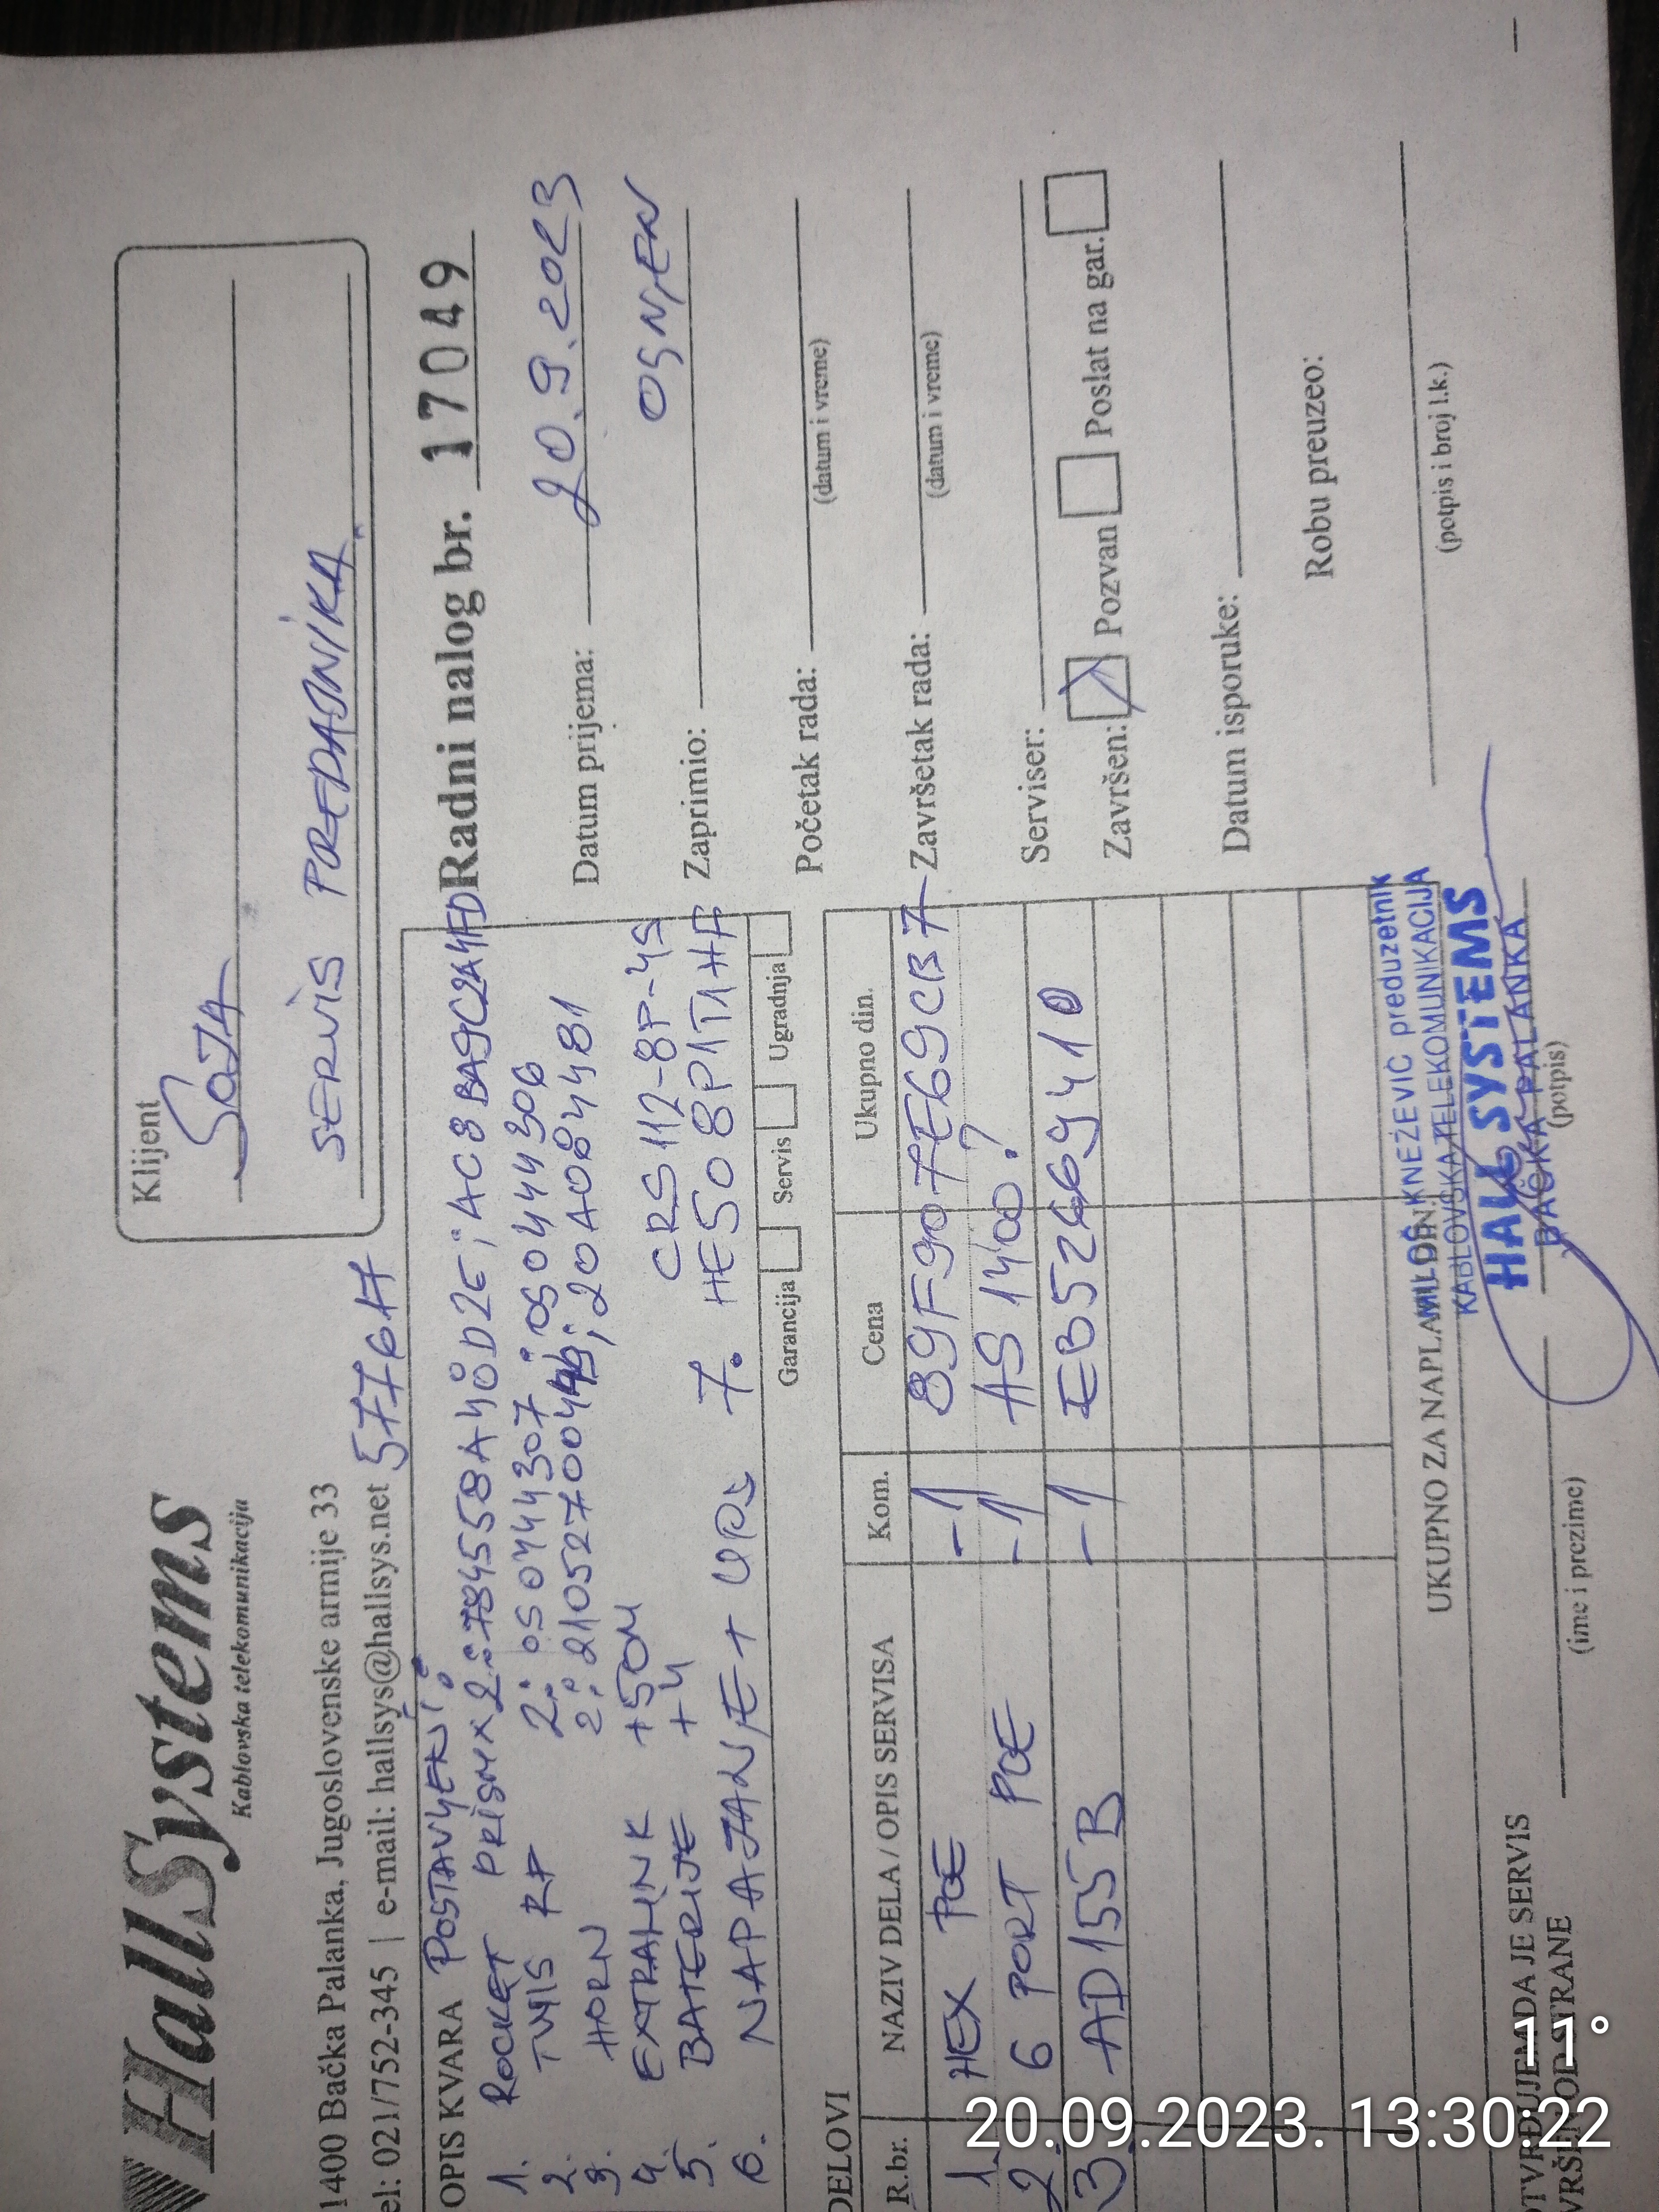 HallSystems
Kablovska telekomunikacija
1400 Bačka Palanka, Jugoslovenske armije 33
el: 021/752-345 | e-mail: hallsys@hallsys.net
Klijent
SOJA
SERVIS PREDAJNIKA
Radni nalog br. 17049
Datum prijema: 20.9.2023
Zaprimio: OGNJEN
Početak rada:
(datum i vreme)
Završetak rada:
(datum i vreme)
Serviser:
Završen: Pozvan Poslat na gar.
Datum isporuke:
Robu preuzeo:
(potpis i broj l.k.)
OPIS KVARA POSTAVLJENI:
1. ROCKET PRISM x 2: 784558A40D2E; AC8BA9C2A4FD
2. RF 2: 050444307; 0504444306
3. HORN 2: ; 20A084481
4. EXTRALINK +50M CRS112-8P-4S
5. BATERIJE +4
6. NAPAJANJE + UPS 7. HE508P1T1HA
Garancija Servis Ugradnja
DELOVI
R.br. NAZIV DELA / OPIS SERVISA Kom. Cena Ukupno din.
1. HEX POE -1 89F907E69CB7
2. 6 PORT POE -1 AS 1400?
3. AD155B -1
UKUPNO ZA NAPLA
MILOŠ KNEŽEVIĆ preduzetnik
KABLOVSKA TELEKOMUNIKACIJA
HALL SYSTEMS
BAČKA PALANKA
(potpis)
OTVRĐUJEM DA JE SERVIS
VRŠEN OD STRANE
(ime i prezime)
11°
20.09.2023. 13:30:22